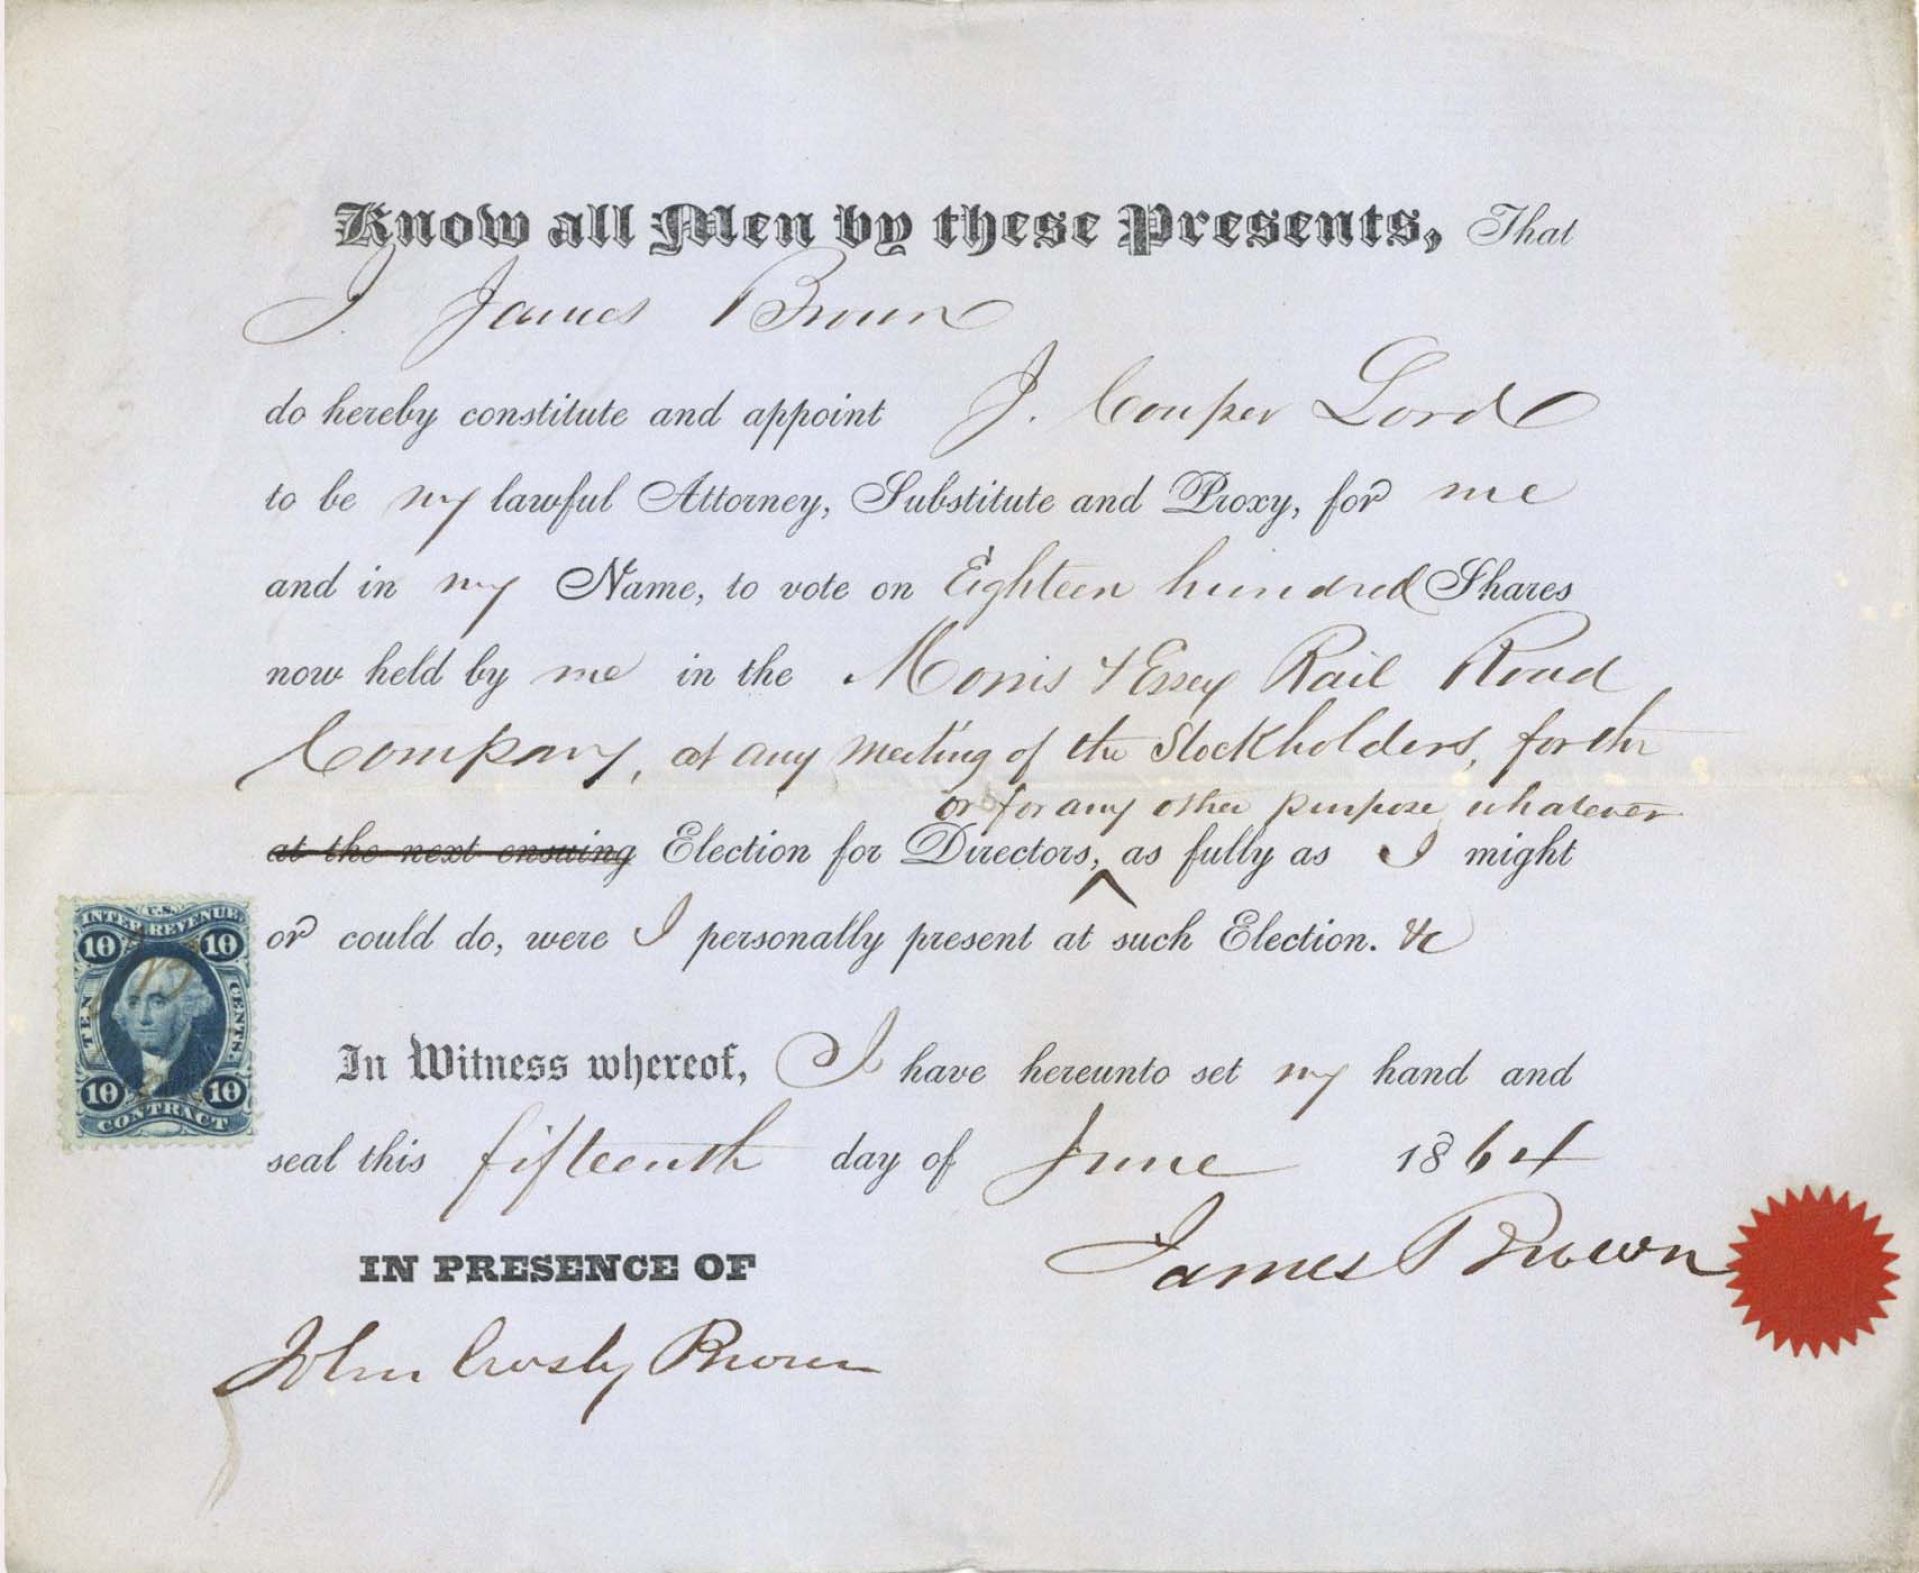 Know all Men by these Presents, That
I James Brown
do hereby constitute and appoint J. Couper Lord
to be my lawful Attorney, Substitute and Proxy, for me
and in my Name, to vote on Eighteen hundred Shares
now held by me in the Morris & Essex Rail Road
Company, at any meeting of the Stockholders, for the
or for any other purpose whatever
at the next ensuing Election for Directors, as fully as I might
or could do, were I personally present at such Election. &c
In Witness whereof, I have hereunto set my hand and
seal this fifteenth day of June 1864
James Brown
IN PRESENCE OF
John Crosby Brown
U.S.
INTER. REVENUE.
10 10
TEN CENTS.
10 10
CONTRACT